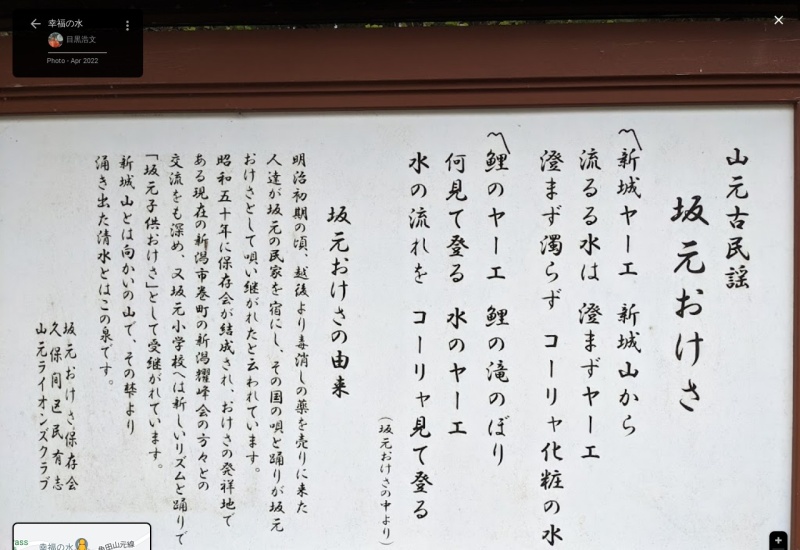 幸福の水
目黒浩文
Photo - Apr 2022
山元古民謡
坂元おけさ
〽新城ヤーエ 新城山から
流るる水は 澄まずヤーエ
澄まず濁らず コーリャ化粧の水
〽鯉のヤーエ 鯉の滝のぼり
何見て登る 水のヤーエ
水の流れを コーリャ見て登る
(坂元おけさの中より)
坂元おけさの由来
明治初期の頃、越後より毒消しの薬を売りに来た
人達が坂元の民家を宿にし、その国の唄と踊りが坂元
おけさとして唄い継がれたと云われています。
昭和五十年に保存会が結成され、おけさの発祥地で
ある現在の新潟市巻町の新潟耀峰会の方々との
交流をも深め、又坂元小学校へは新しいリズムと踊りで
「坂元子供おけさ」として受継がれています。
新城山とは向かいの山で、その麓より
涌き出た清水とはこの泉です。
坂元おけさ保存会
久保間区民有志
山元ライオンズクラブ
幸福の水
角田山元線